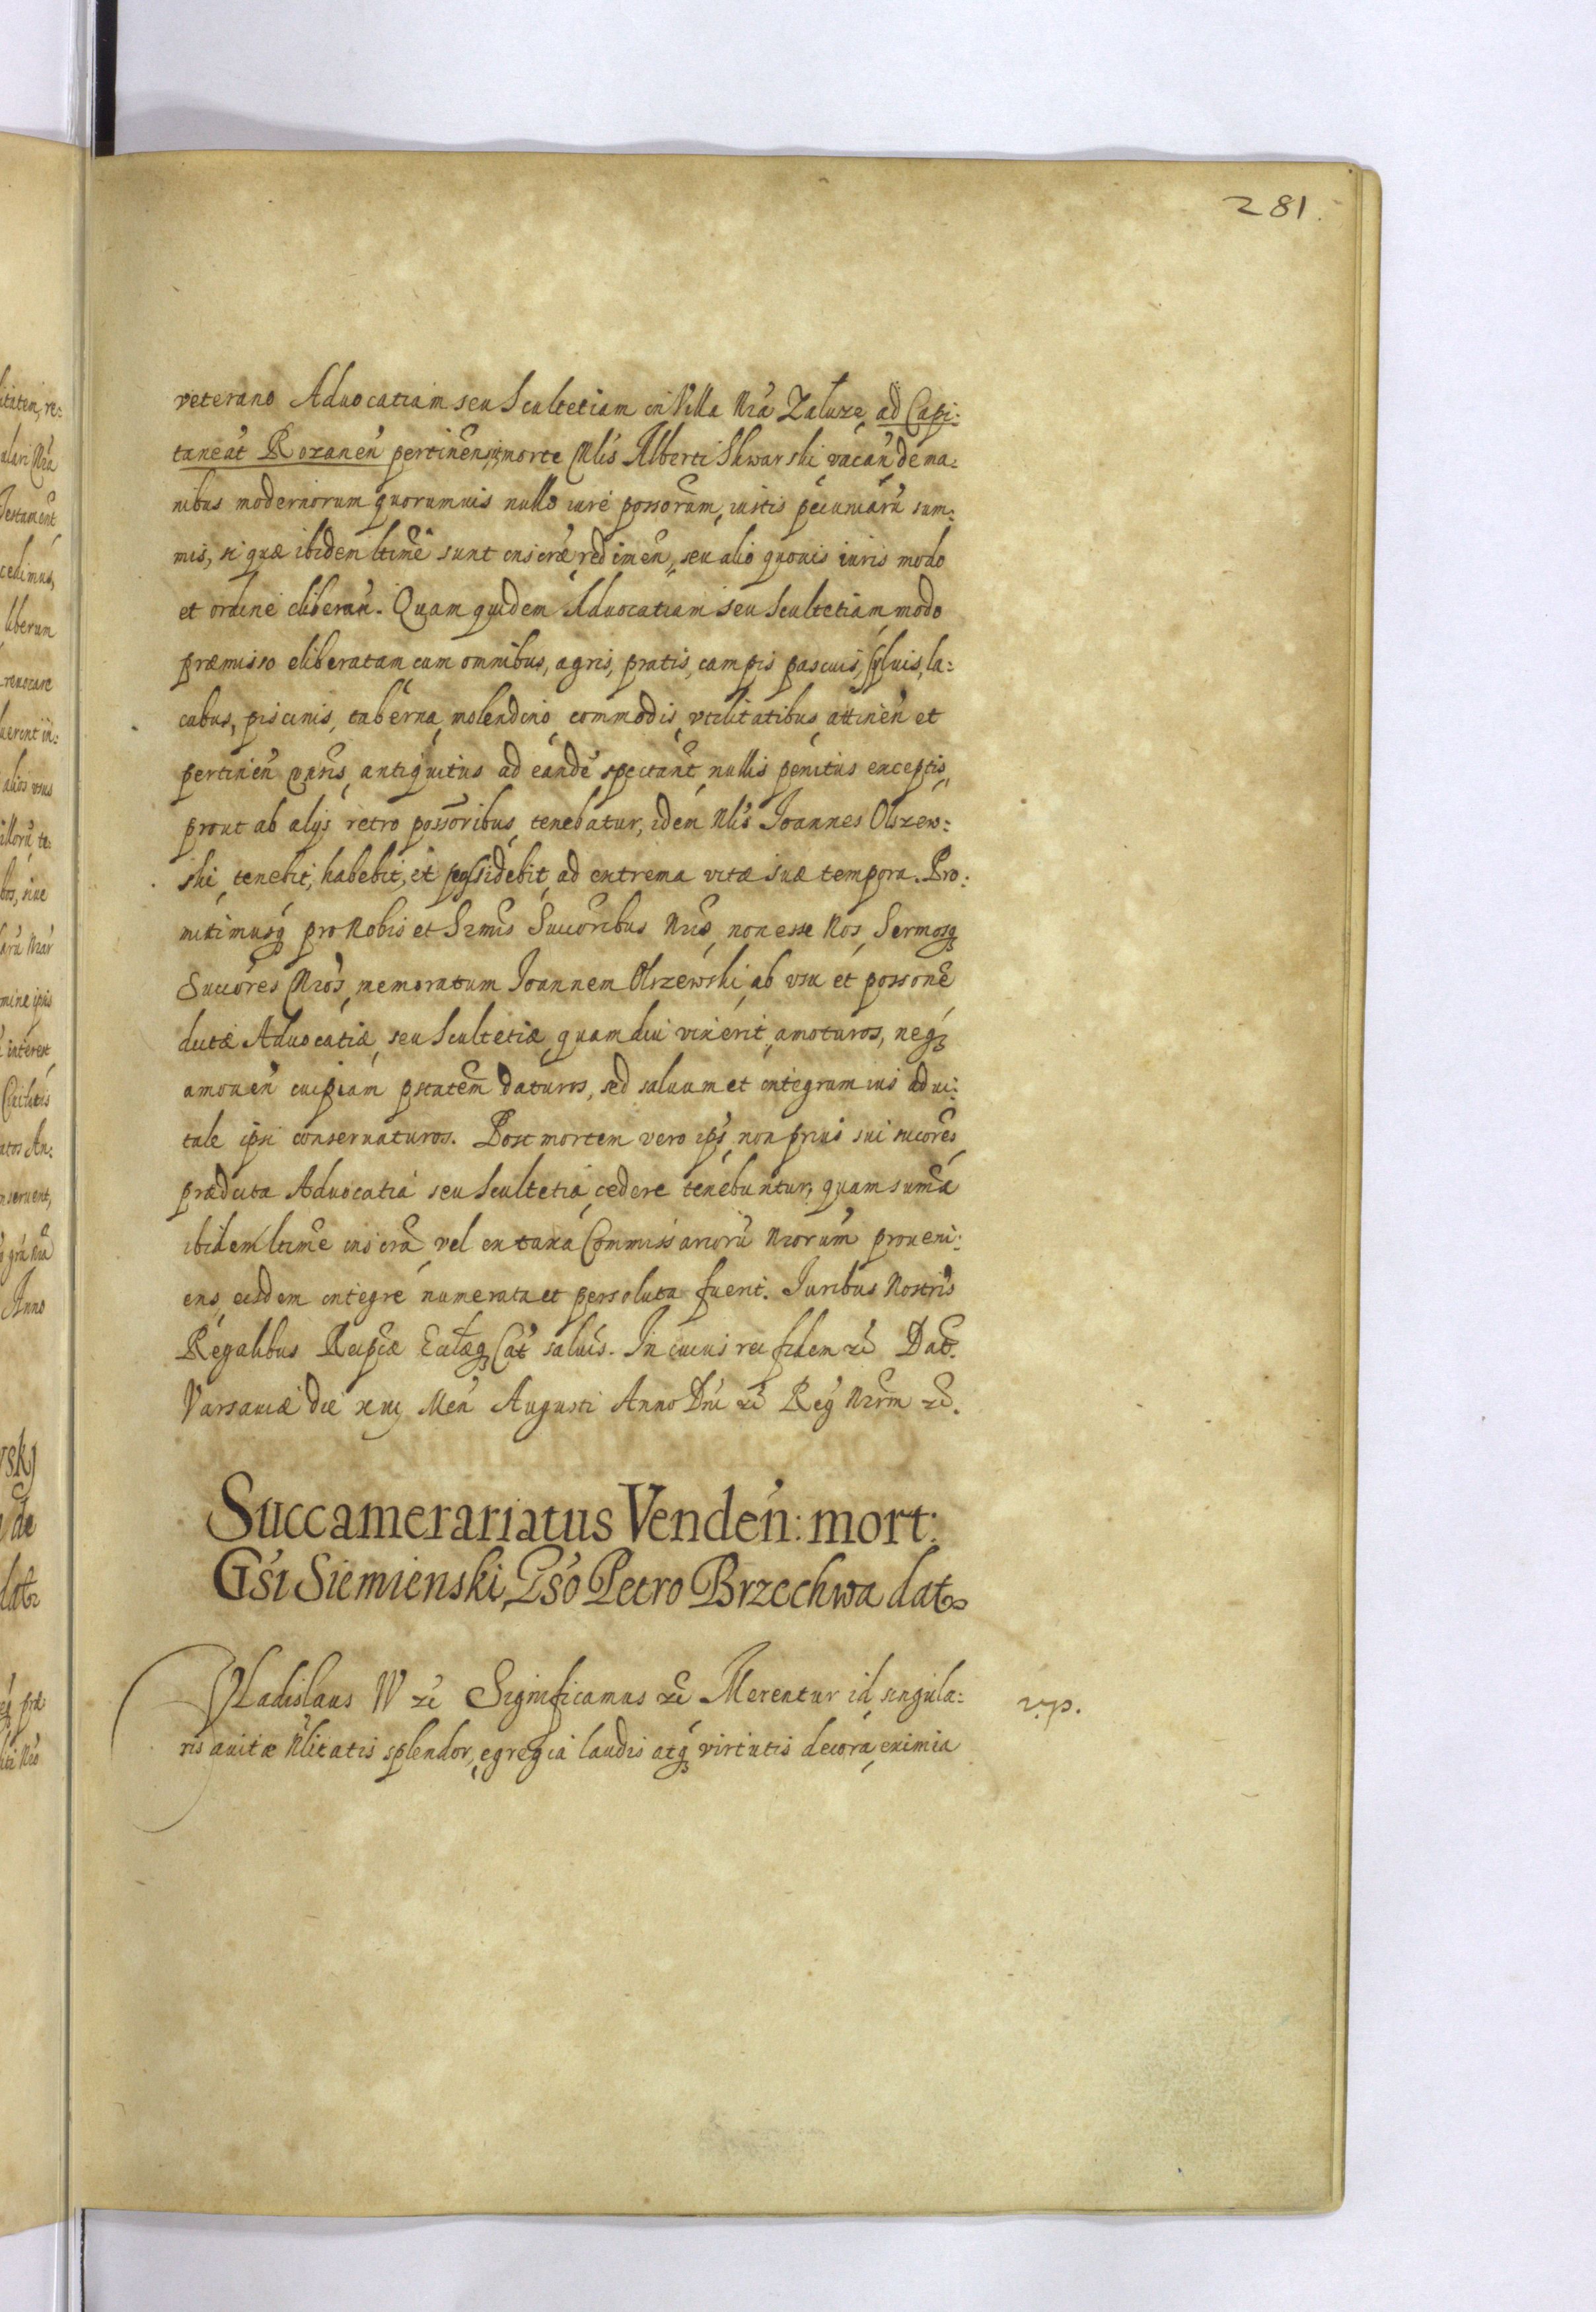 281.
veterano Aduocatiam seu Scultetiam in Villa Nrã Zaluze, ad Capi:
taneat̃ Rozaneñ pertineñ, morte Nlis Alberti Skwarski vacañ de ma:
nibus modernorum quorumuis nullo iure possorum, iustis pecuniarũ sum:
mis, si quæ ibidem ltime sunt inscræ, redimeñ, seu alio quouis iuris modo
et ordine eliberañ. Quam quidem Aduocatiam seu Scultetiam, modo
præmisso eliberatam cum omnibus, agris, pratis, campis pascuis, syluis, la:
cubus, piscinis, taberna, molendino, commodis, vtilitatibus, attineñ et
pertineñ vnsis, antiquitus ad eandẽ spectant̃, nullis penitus exceptis,
prout ab alijs retro possoribus tenebatur, idem Nlis Joannes Olszew:
ski, tenebit, habebit, et possidebit, ad extrema vitæ suæ tempora. Pro:
mittimusq; pro Nobis et Srmis Succoribus Nris, non esse Nos, Sermosq;
Succores Nros, memoratum Joannem Olszewski, ab vsu et possone
dictæ Aduocatiæ, seu Scultetiæ, quam diu vixerit, amoturos, neq;
amouen̄ cuipiam ptatem daturos, sed saluum et integrum ius adui:
tale ipsi conseruaturos. Post mortem vero ips, non prius sui succores
prædicta Aduocatia seu Scultetia cedere tenebuntur, quam summa
ibidem ltime inscra, vel ex taxa Commissariorũ Nrorum proueni:
ens, eisdem integre numerata et persoluta fuerit. Juribus Nostris
Regalibus Reipcæ Ecclæq; Cat̃ saluis. In cuius rei fidem &c̃ Dat̃.
Varsauiæ die xvij Meñ Augusti Anno Dni &c̃ Reg̃ Nrorm &c̃.
Succamerariatus Venden̄: mort:
Gsi Siemienski, Gso Petro Brzechwa dat
Vladislaus IV &c̃ Significamus &c̃ Merentur id singula:
ris auitæ Nlitatis splendor, egregia laudis atq; virtutis decora, eximia